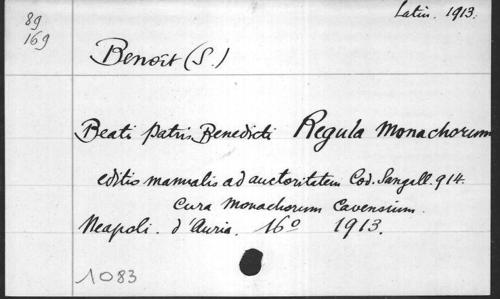 Latin. 1913.
89
169
Benoît (S.)
Beati Patris Benedicti Regula Monachorum
editio manualis ad auctoritatem Cod. Sangall. 914.
cura Monachorum Cavensium.
Neapoli. d'Auria. 16° 1913.
1083